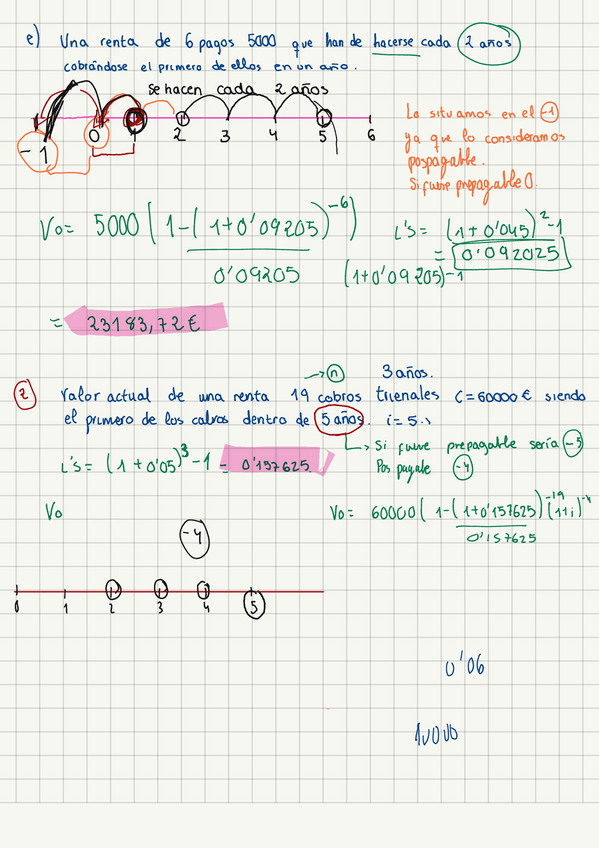 e) Una renta de 6 pagos 5000 que han de hacerse cada 2 años
cobrándose el primero de ellos en un año.
se hacen cada 2 años
-1 0 2 3 4 5 6
Lo situamos en el -1
ya que lo consideramos
pospagable.
Si fuere prepagable 0.
Vo= 5000 ( 1-( 1+0'09205)^-6 )
0'09205
(1+0'09205)^-1
i's= (1+0'045)^2-1
= 0'092025
= 23183,72€
→ n 3 años.
2 Valor actual de una renta 19 cobros trienales C=60000€ siendo
el primero de los cobros dentro de 5 años. i=5.
↳ Si fuere prepagable sería -5
Pos pagable -4
i's= (1+0'05)^3-1 = 0'157625
Vo
Vo= 60000( 1-(1+0'157625)^-19 (1+i)^-4
0'157625
-4
0 1 2 3 4 5
0'06